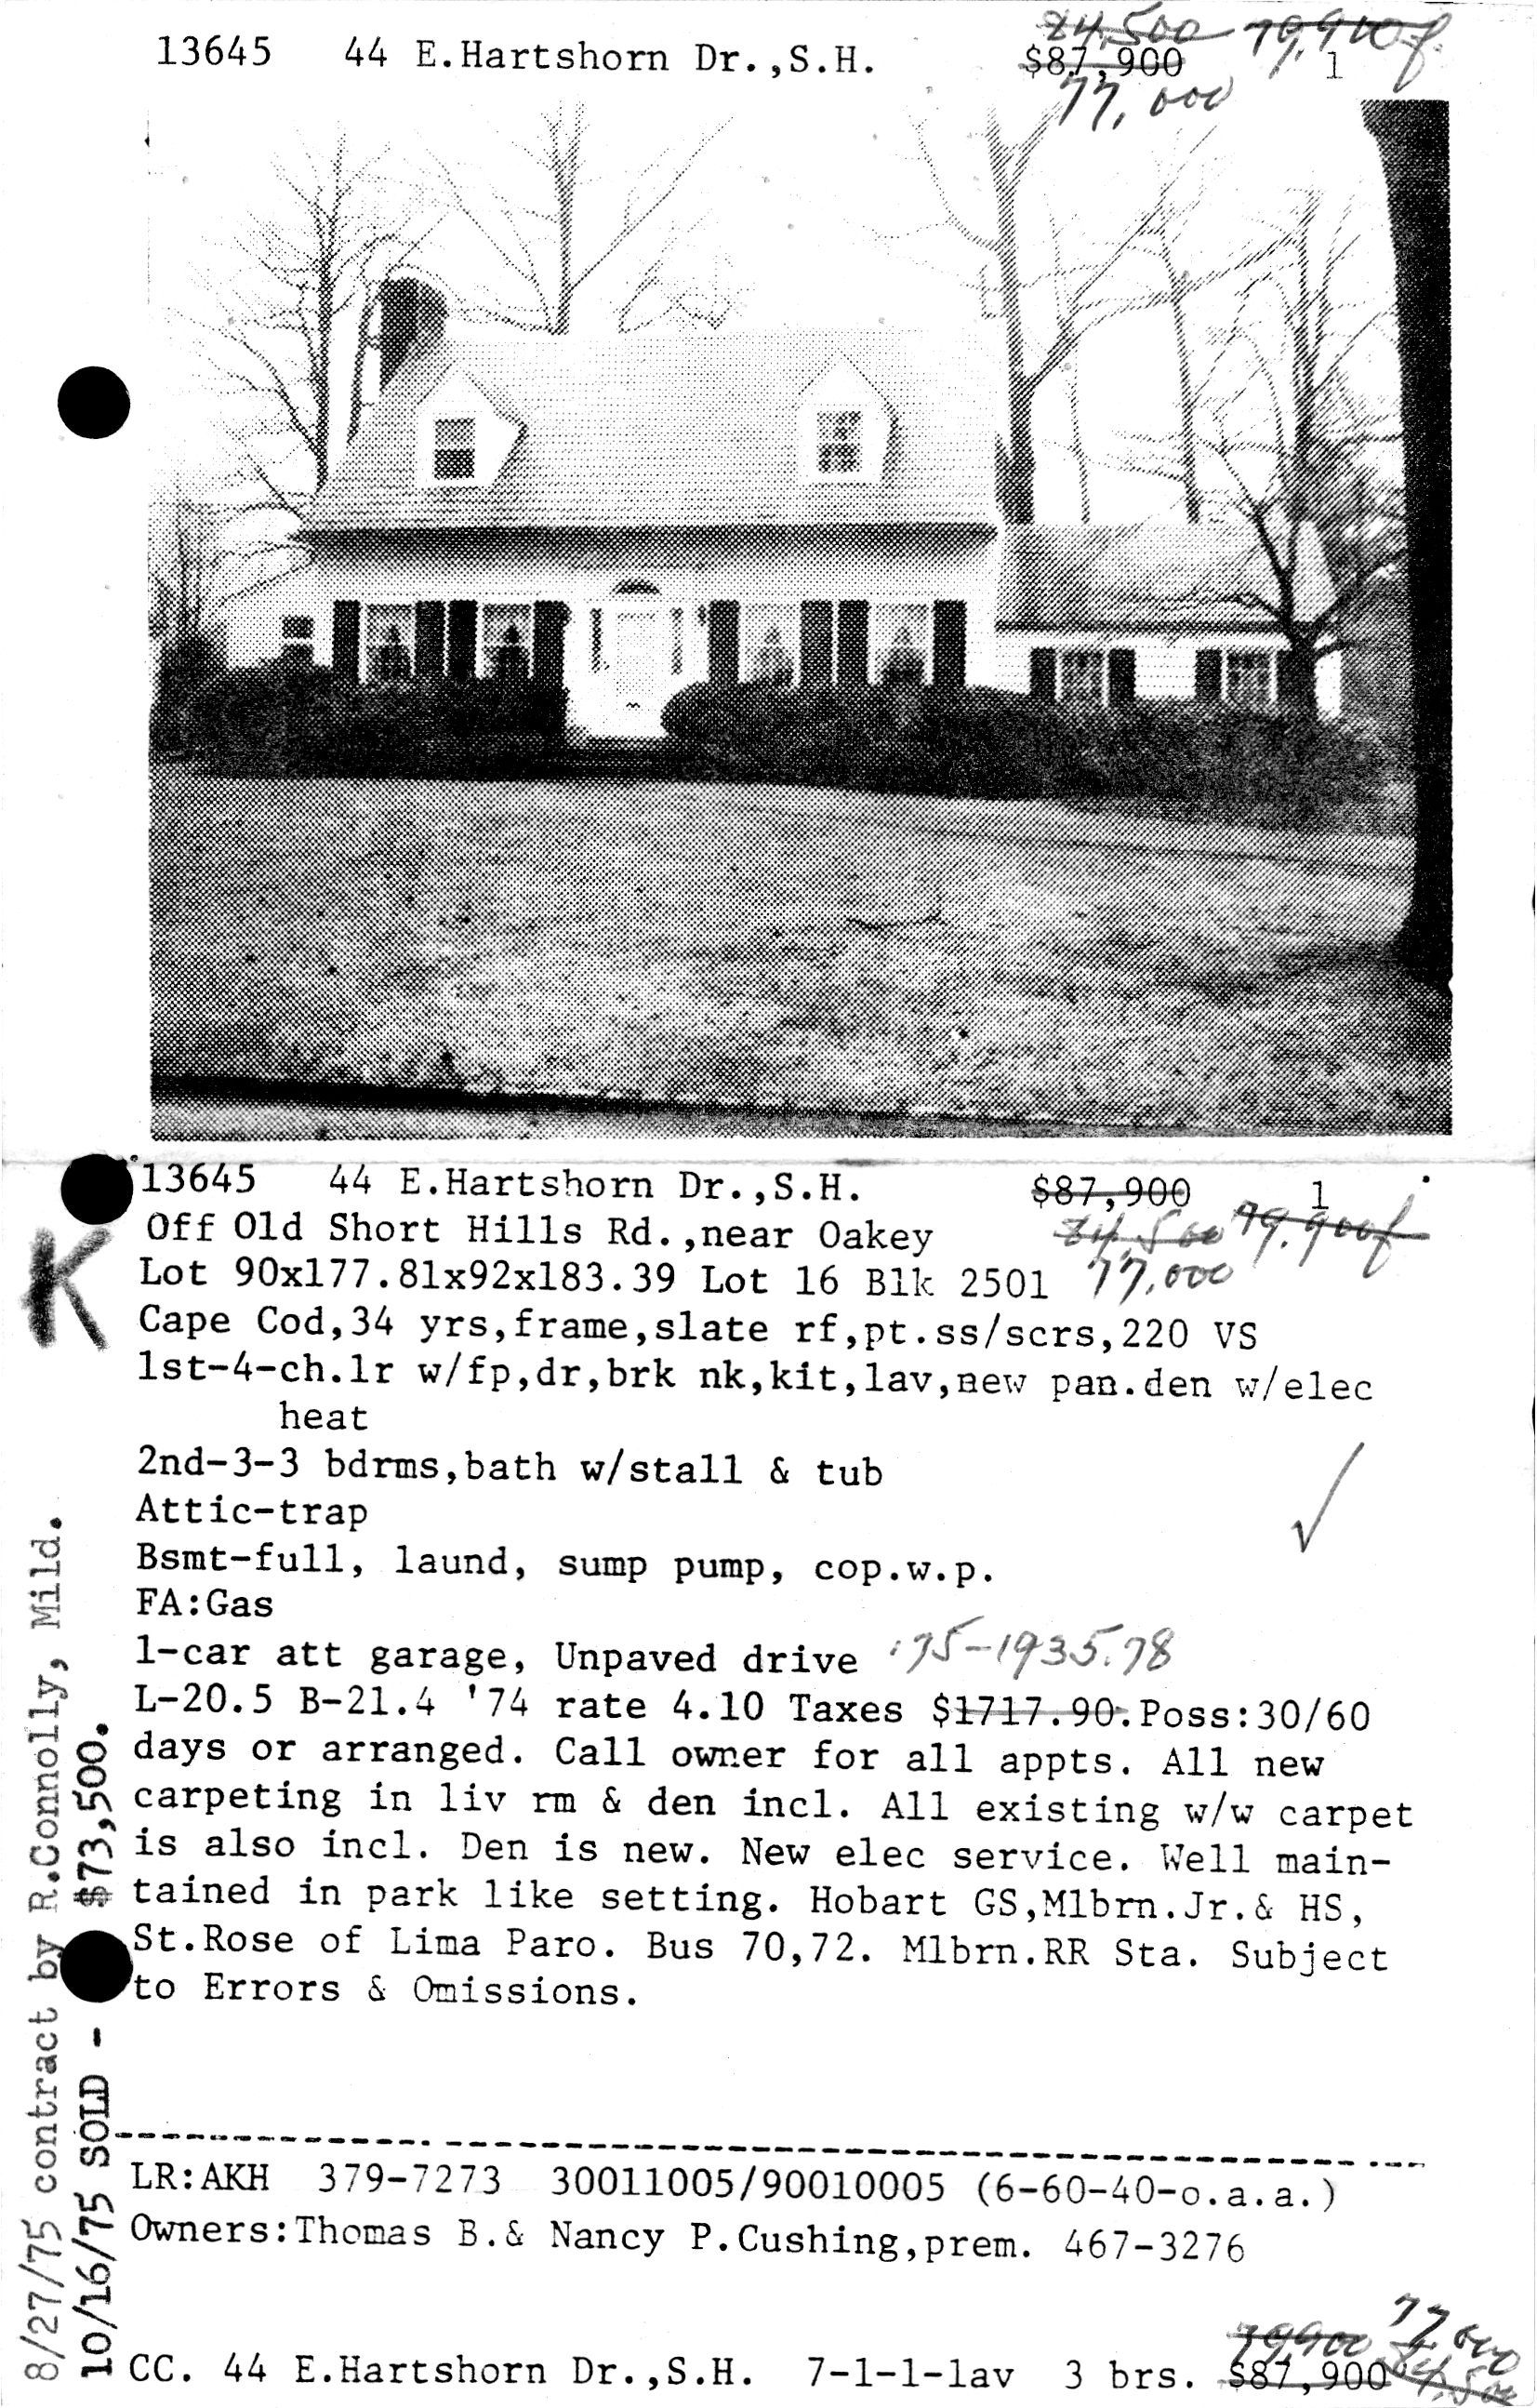 84,500 79,900f
13645 44 E.Hartshorn Dr.,S.H. $87,900 1
77,000
13645 44 E.Hartshorn Dr.,S.H. $87,900 1
Off Old Short Hills Rd.,near Oakey 84,500 79,900f
Lot 90x177.81x92x183.39 Lot 16 Blk 2501 77,000
K
Cape Cod,34 yrs,frame,slate rf,pt.ss/scrs,220 VS
1st-4-ch.lr w/fp,dr,brk nk,kit,lav,new pan.den w/elec
heat
2nd-3-3 bdrms,bath w/stall & tub
Attic-trap
Bsmt-full, laund, sump pump, cop.w.p.
FA:Gas
1-car att garage, Unpaved drive '75-1935.78
L-20.5 B-21.4 '74 rate 4.10 Taxes $1717.90.Poss:30/60
days or arranged. Call owner for all appts. All new
carpeting in liv rm & den incl. All existing w/w carpet
is also incl. Den is new. New elec service. Well main-
tained in park like setting. Hobart GS,Mlbrn.Jr.& HS,
St.Rose of Lima Paro. Bus 70,72. Mlbrn.RR Sta. Subject
to Errors & Omissions.
8/27/75 contract by R.Connolly, Mild.
10/16/75 SOLD - $73,500.
LR:AKH 379-7273 30011005/90010005 (6-60-40-o.a.a.)
Owners:Thomas B.& Nancy P.Cushing,prem. 467-3276
79900 77,000
CC. 44 E.Hartshorn Dr.,S.H. 7-1-1-lav 3 brs. $87,900 84,500